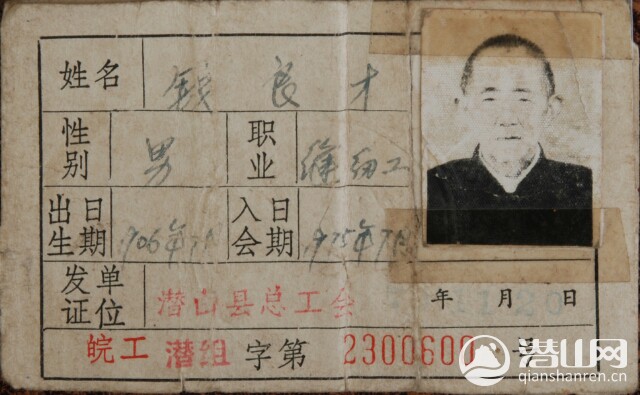 姓名 钱良才
性别 男 职业 缝纫工
出生日期 1906年7月 入会日期 1975年7月
发证单位 潜山县总工会 年 月 日
皖工 潜组 字第 2300600 号
潜山网
qianshanren.cn